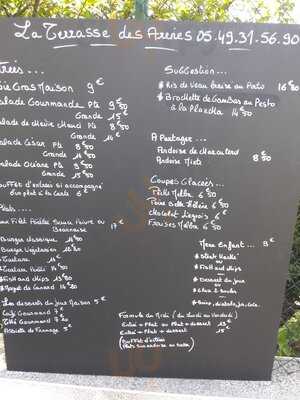 La Terrasse des Arènes 05.49.31.56.90
Gras Maison 9€
Salade Gourmande Pte 9€50
Grande 15€
Salade de Chèvre Pte 8€50
Grande 14€
Salade César Pte 8€50
Grande 14€50
Salade Océane Pte 9€50
Grande 15€50
Buffet d'entrées si accompagné
d'un plat à la carte 6€
Plats...
Filet Poêlée Sauce Poivre ou
Béarnaise 17€
Burger classique 14€50
Burger Végétarien
Tartare
Tartare Poêlé 14€50
Fish and chips 13€50
Magret de Canard 14€50
Les desserts du jour Maison 5€
Café Gourmand 7€
Thé Gourmand 7€50
Assiette de Fromage 5€
Suggestion...
Ris de Veau braisé au Porto 16€50
Brochette de Gambas au Pesto
à la Plancha 14€50
A Partager...
Ardoise de
Ardoise Mixte 8€50
Coupes Glacées...
Pêche Melba 6€
Poire Belle Hélène 6€
chocolat Liégeois 6€
Fraises Melba 6€50
Menu Enfant... 8€
Steak Haché
ou
Fish and chips
Dessert du jour
ou
Glace 2 boules
Sirop, diabolo, jus, Coca..
Formule du Midi (du Lundi au Vendredi)
Entrée + Plat ou Plat + dessert 13€
Entrée + Plat + dessert 15€
(Buffet d'entrées
Plat, fromage ou salade)